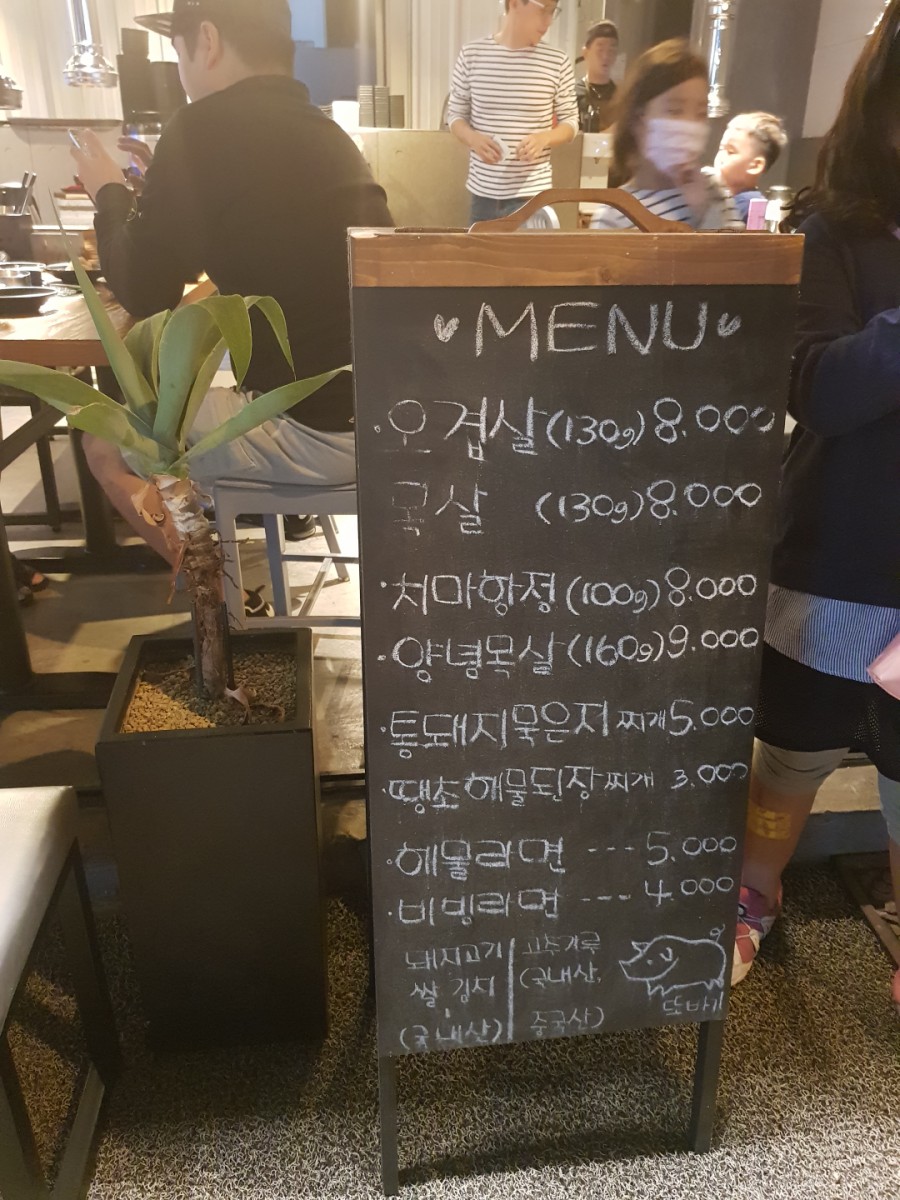 MENU
·오겹살(130g) 8.000
목살 (130g) 8.000
·처마항정(100g) 8.000
·양념목살(160g) 9.000
·통돼지묵은지 찌개 5.000
·땡초해물된장찌개 3.000
·해물라면 --- 5.000
·비빔라면 --- 4.000
돼지고기
쌀, 김치
(국내산)
고추가루
(국내산,
중국산)
또바기